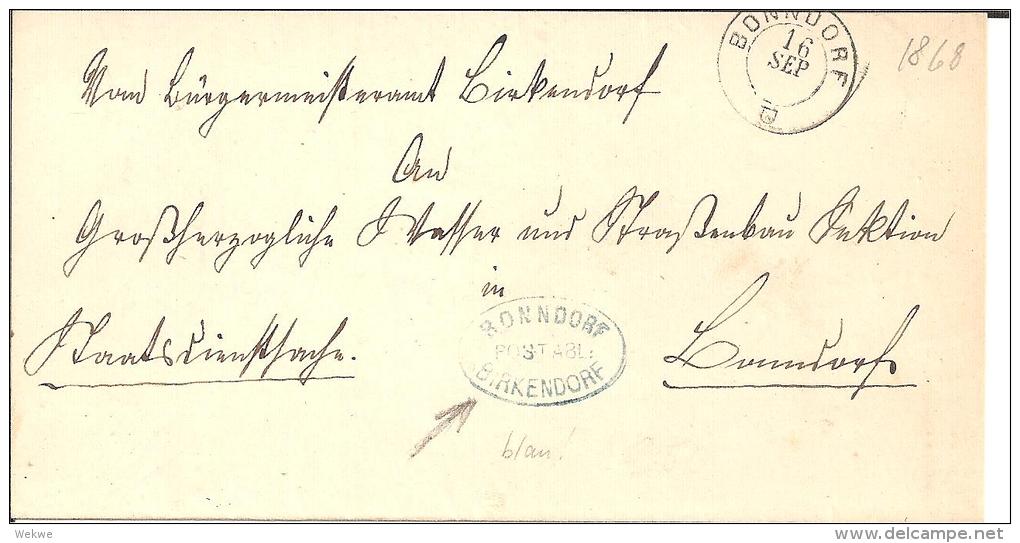 BONNDORF
16
SEP
1868
Vom Bürgermeisteramt Birkendorf
An
Großherzogliche Wasser und Straßenbau Sektion
in
BONNDORF
POSTABL:
BIRKENDORF
Staatsdienstsache.
Bonndorf
blau!
Wekwe
delcampe.net